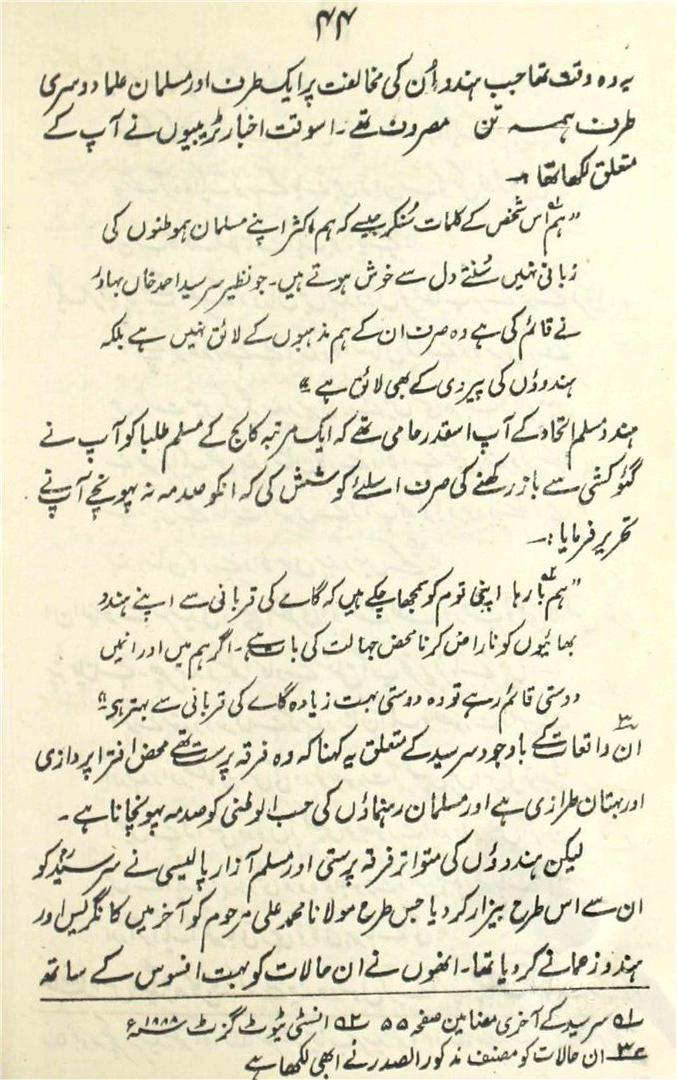 ۴۴
یہ وہ وقت تھا جب ہندو اُن کی مخالفت پر ایک طرف اور مسلمان علماء دوسری
طرف ہمہ تن مصروف تھے۔ اسوقت اخبار ٹریبیون نے آپ کے
متعلق لکھا تھا :۔
"ہم۱ اس شخص کے کلمات سُنکر جیسے کہ ہم اکثر اپنے مسلمان ہموطنوں کی
زبانی نہیں سُنتے دل سے خوش ہوتے ہیں۔ جو نظیر سر سید احمد خاں بہادر
نے قائم کی ہے وہ صرف ان کے ہم مذہبوں کے لائق نہیں ہے بلکہ
ہندوؤں کی پیروی کے بھی لائق ہے"
ہندو مسلم اتحاد کے آپ اسقدر حامی تھے کہ ایک مرتبہ کالج کے مسلم طلبا کو آپ نے
گئوکشی سے باز رکھنے کی صرف اسلئے کوشش کی کہ انکو صدمہ نہ پہونچے آپ نے
تحریر فرمایا :۔
"ہم۲ بارہا اپنی قوم کو سمجھا چکے ہیں کہ گائے کی قربانی سے اپنے ہندو
بھائیوں کو ناراض کرنا محض جہالت کی بات ہے۔ اگر ہم میں اور انمیں
دوستی قائم رہے تو وہ دوستی بہت زیادہ گائے کی قربانی سے بہتر ہی"
ان۳ واقعات کے باوجود سرسید کے متعلق یہ کہنا کہ وہ فرقہ پرست تھے محض افترا پردازی
اور بہتان طرازی ہے اور مسلمان رہنماؤں کی حب الوطنی کو صدمہ پہونچانا ہے۔
لیکن ہندوؤں کی متواتر فرقہ پرستی اور مسلم آزار پالیسی نے سرسیدؒ کو
ان سے اس طرح بیزار کر دیا جس طرح مولانا محمد علی مرحوم کو آخر میں کانگریس اور
ہندو زعما نے کر دیا تھا۔ انھوں نے ان حالات کو بہت افسوس کے ساتھ
۱؎ سرسید کے آخری مضامین صفحہ ۵۵ ۲؎ انسٹی ٹیوٹ گزٹ ۱۹۸۸ء
۳؎ ان حالات کو مصنف مذکور الصدر نے ابھی لکھا ہے